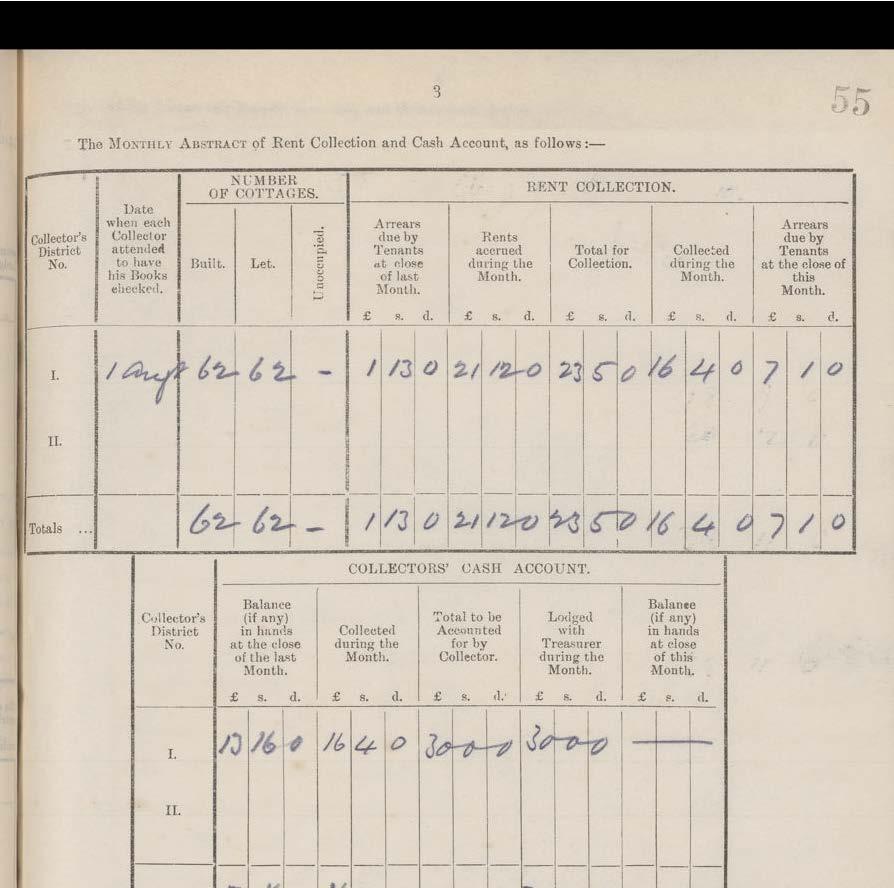 3
55
The MONTHLY ABSTRACT of Rent Collection and Cash Account, as follows:—
Collector's District No.
Date when each Collector attended to have his Books checked.
NUMBER OF COTTAGES.
Built.
Let.
Unoccupied.
RENT COLLECTION.
Arrears due by Tenants at close of last Month.
Rents accrued during the Month.
Total for Collection.
Collected during the Month.
Arrears due by Tenants at the close of this Month.
£ s. d. £ s. d. £ s. d. £ s. d. £ s. d.
I. 1 Augt 62 62 - 1 13 0 21 12 0 23 5 0 16 4 0 7 1 0
II.
Totals ... 62 62 - 1 13 0 21 12 0 23 5 0 16 4 0 7 1 0
COLLECTORS' CASH ACCOUNT.
Collector's District No.
Balance (if any) in hands at the close of the last Month.
Collected during the Month.
Total to be Accounted for by Collector.
Lodged with Treasurer during the Month.
Balance (if any) in hands at close of this Month.
£ s. d. £ s. d. £ s. d. £ s. d. £ s. d.
I. 13 16 0 16 4 0 30 0 0 30 0 0 —
II.